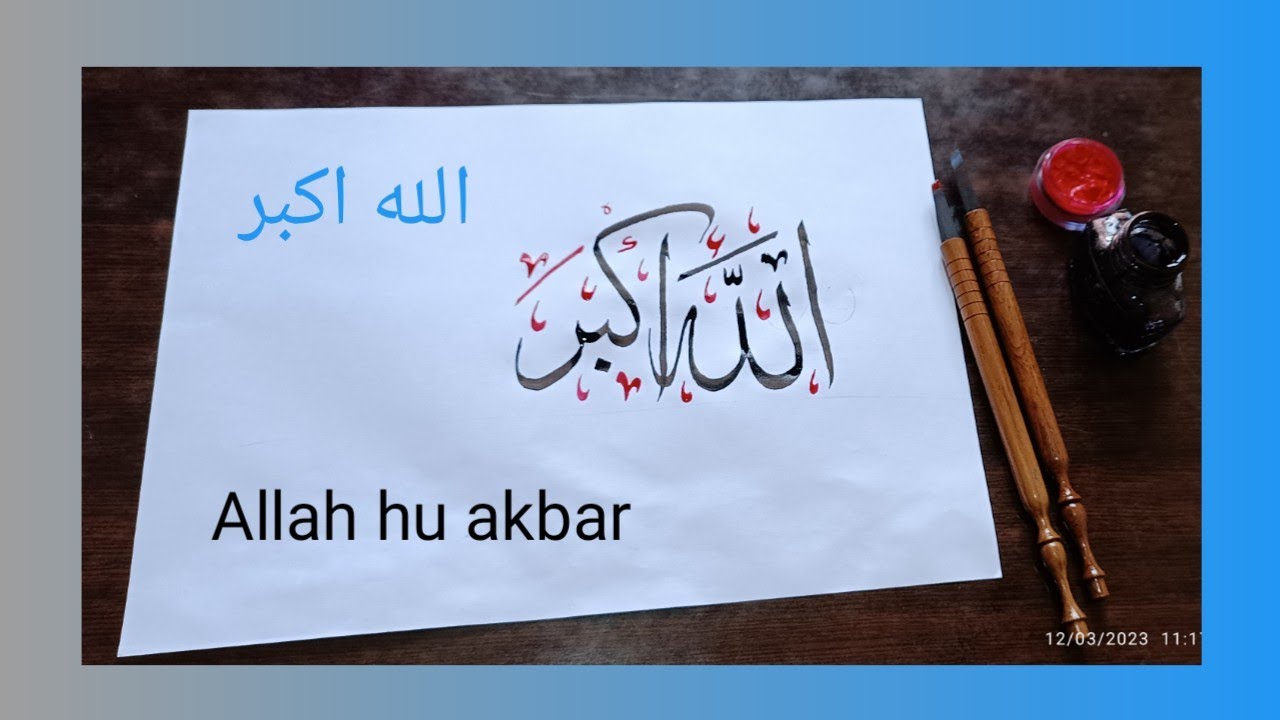 الله اكبر
اللّٰه أكبر
Allah hu akbar
12/03/2023 11:1